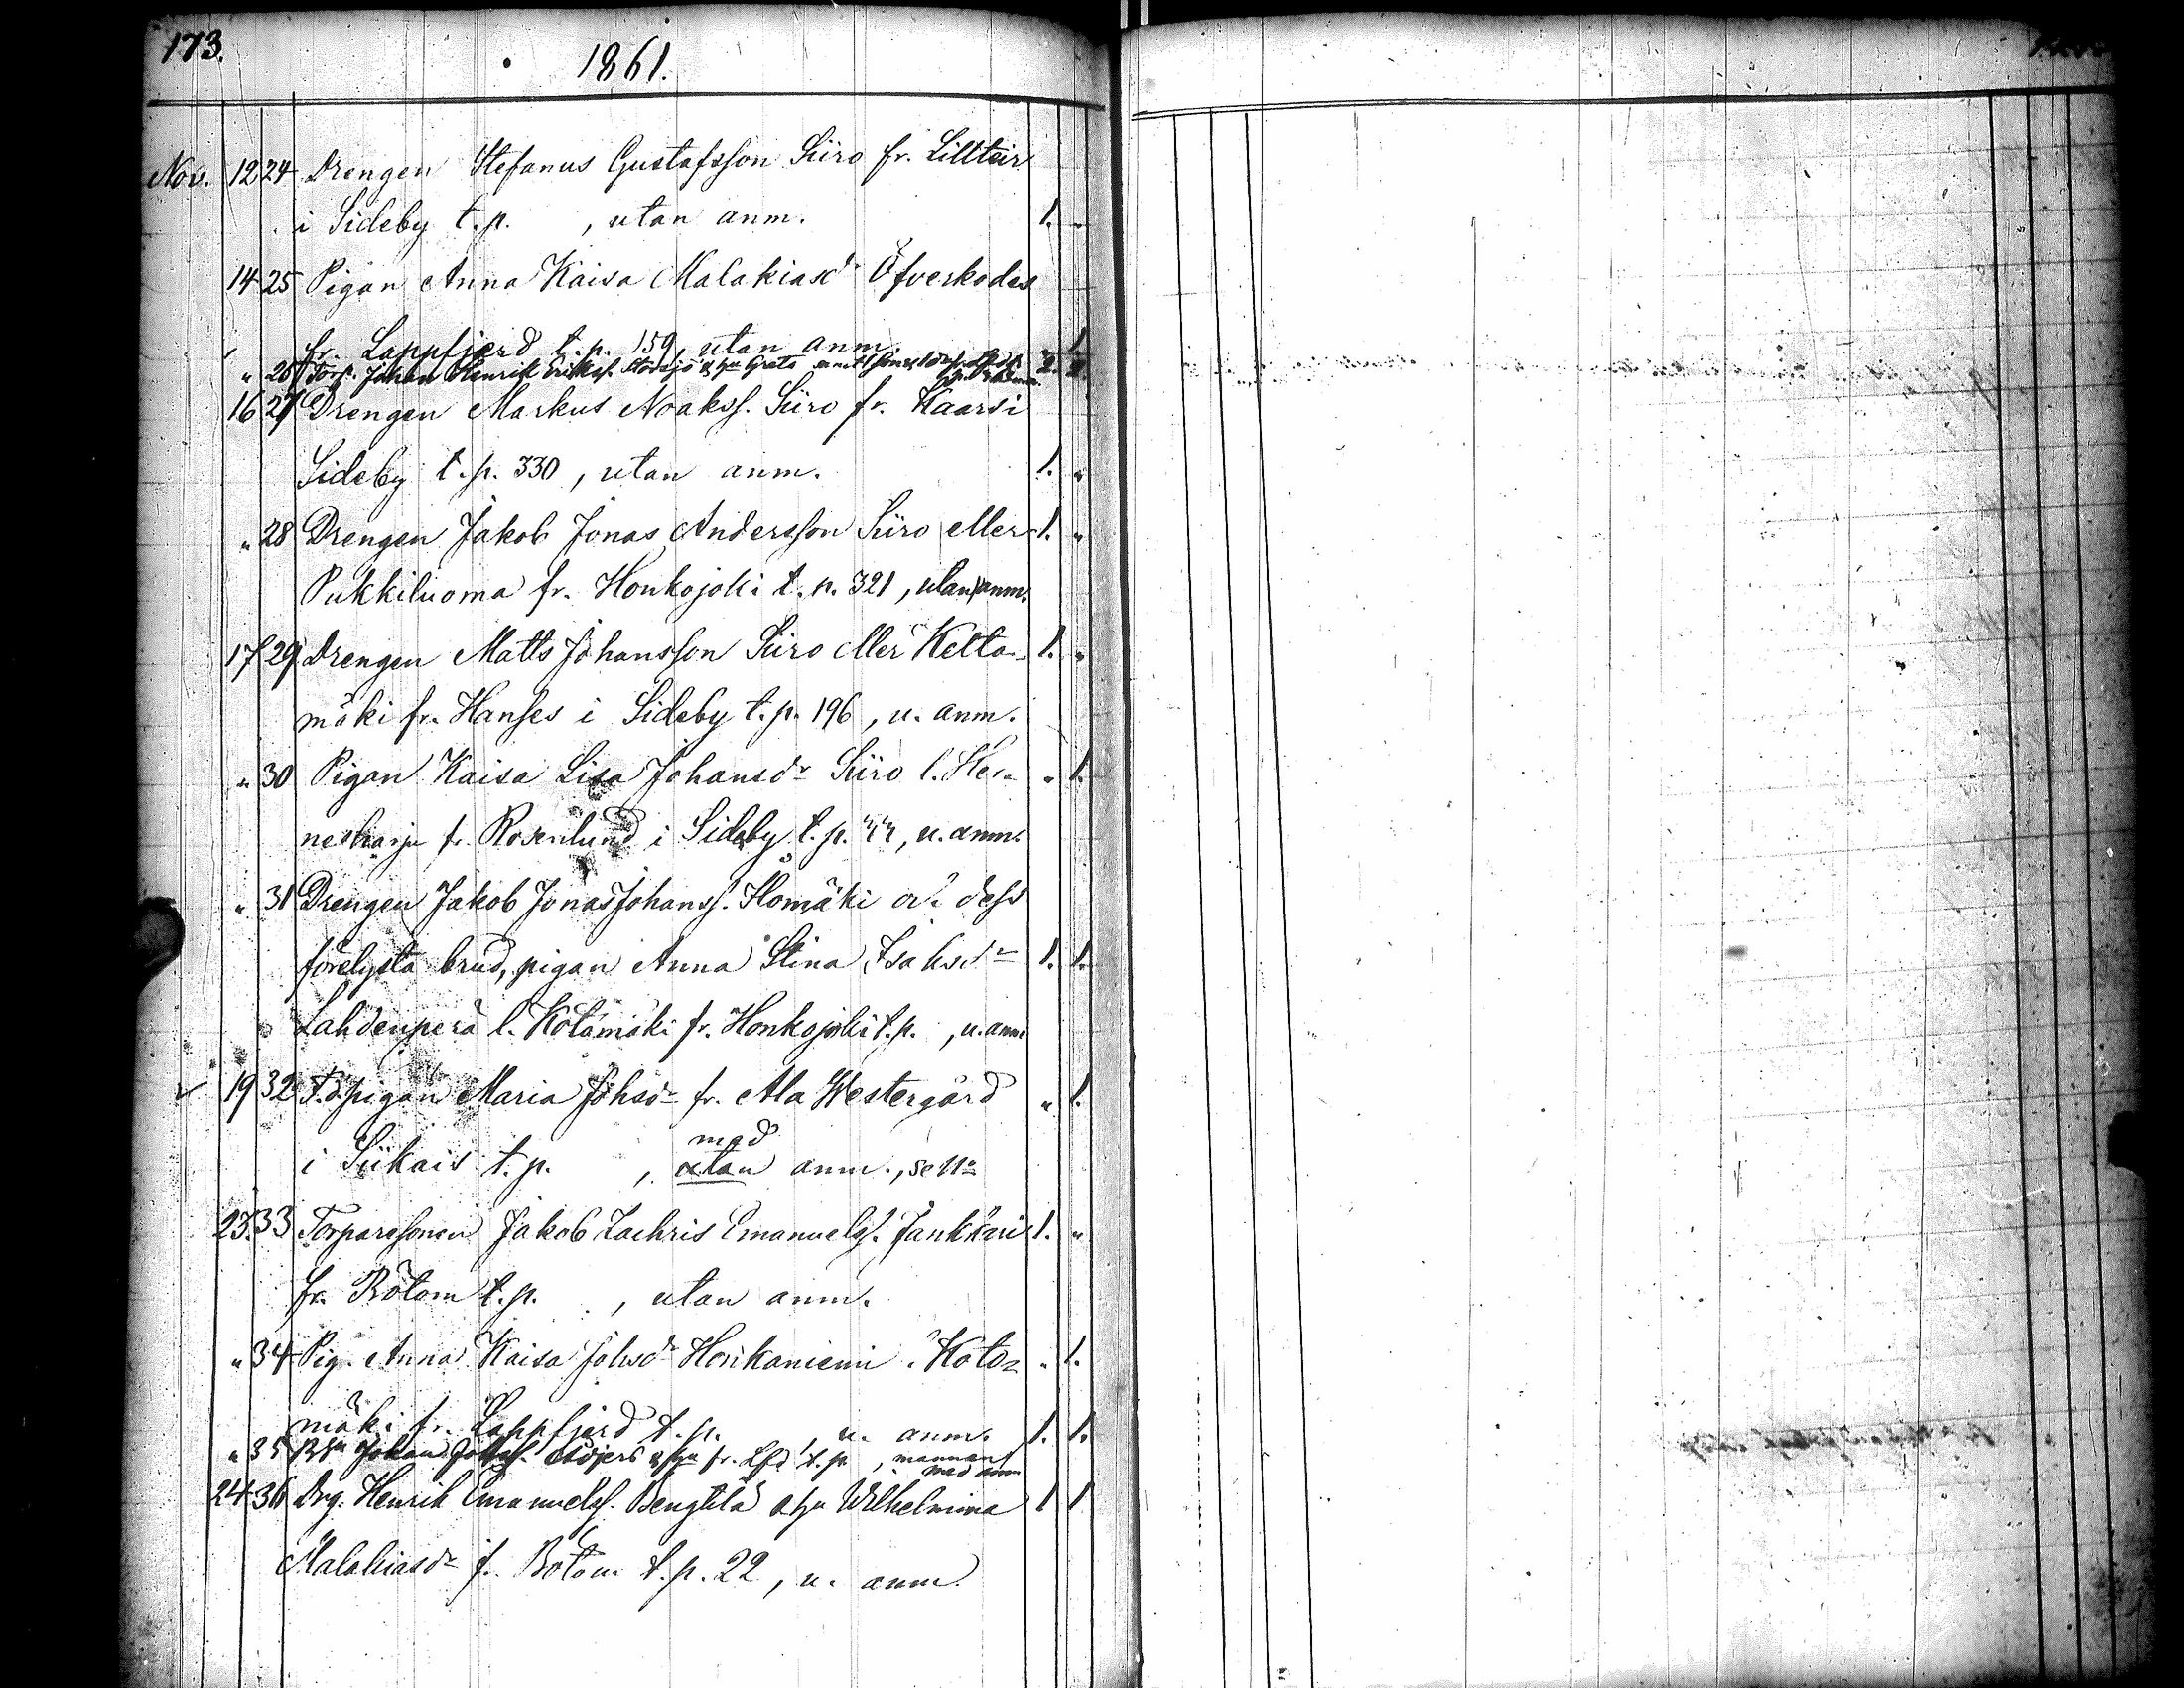 173.
1861.
Nov. 12 24 Drengen Stefanus Gustafsson Siiro fr. Lillteir
i Sideby t.p. , utan anm. 1. "
14 25 Pigan Anna Kaisa Malakiasdr Öfverkodas
fr. Lappfjerd t.p. 159, utan anm. " 1.
" 26 Torp. Johan Henrik Erikss. Stodsjö & hu Greta 2. 2.
16 27 Drengen Markus Noakss. Siiro fr. Kaarsi
Sideby t.p. 330, utan anm. 1. "
" 28 Drengen Jakob Jonas Andersson Siiro eller 1. "
Pukkiluoma fr. Honkojoki t.p. 321, utan anm.
17 29 Drengen Matts Johansson Siiro eller Kelta- 1. "
mäki fr. Hanses i Sideby t.p. 196, u. anm.
" 30 Pigan Kaisa Lisa Johansdr Siiro l. Her- " 1.
nesharju fr. Rosenlund i Sideby t.p. , u. anm.
" 31 Drengen Jakob Jonas Johanss. Ilomäki o. dess
förelysta brud, pigan Anna Stina Isaksdr 1. 1.
Lahdenperä l. Kotamäki fr. Honkojoki t.p. , u. anm
19 32 T.d. pigan Maria Johsdr fr. Ala Westergård " 1.
med
i Siikais t.p. , utan anm., se
23. 33 Torparesonen Jakob Zachris Emanuelss. Jankkari 1. "
fr. Bötom t.p. , utan anm.
" 34 Pig. Anna Kaisa Johsdr Honkaniemi l. Koto- " 1.
mäki fr. Lappfjerd t.p. , u. anm.
" 35 Johan fr. Lfd t.p. , mannen 1. 1.
med anm
24 36 Drg. Henrik Emanuelss. Bengtilä o hu Wilhelmina 1 1
Malakiasdr f. Bötom t.p. 22, u. anm.